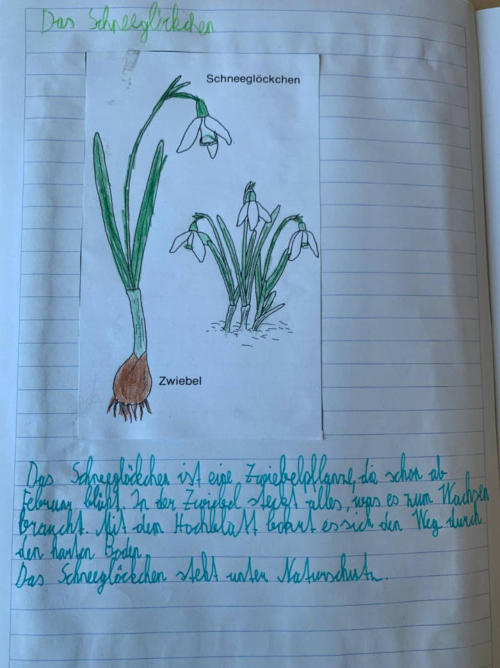 Das Schneeglöckchen
Schneeglöckchen
Zwiebel
Das Schneeglöckchen ist eine Zwiebelpflanze, die schon ab
Februar blüht. In der Zwiebel steckt alles, was es zum Wachsen
braucht. Mit dem Hochblatt bohrt es sich den Weg durch
den harten Boden.
Das Schneeglöckchen steht unter Naturschutz.